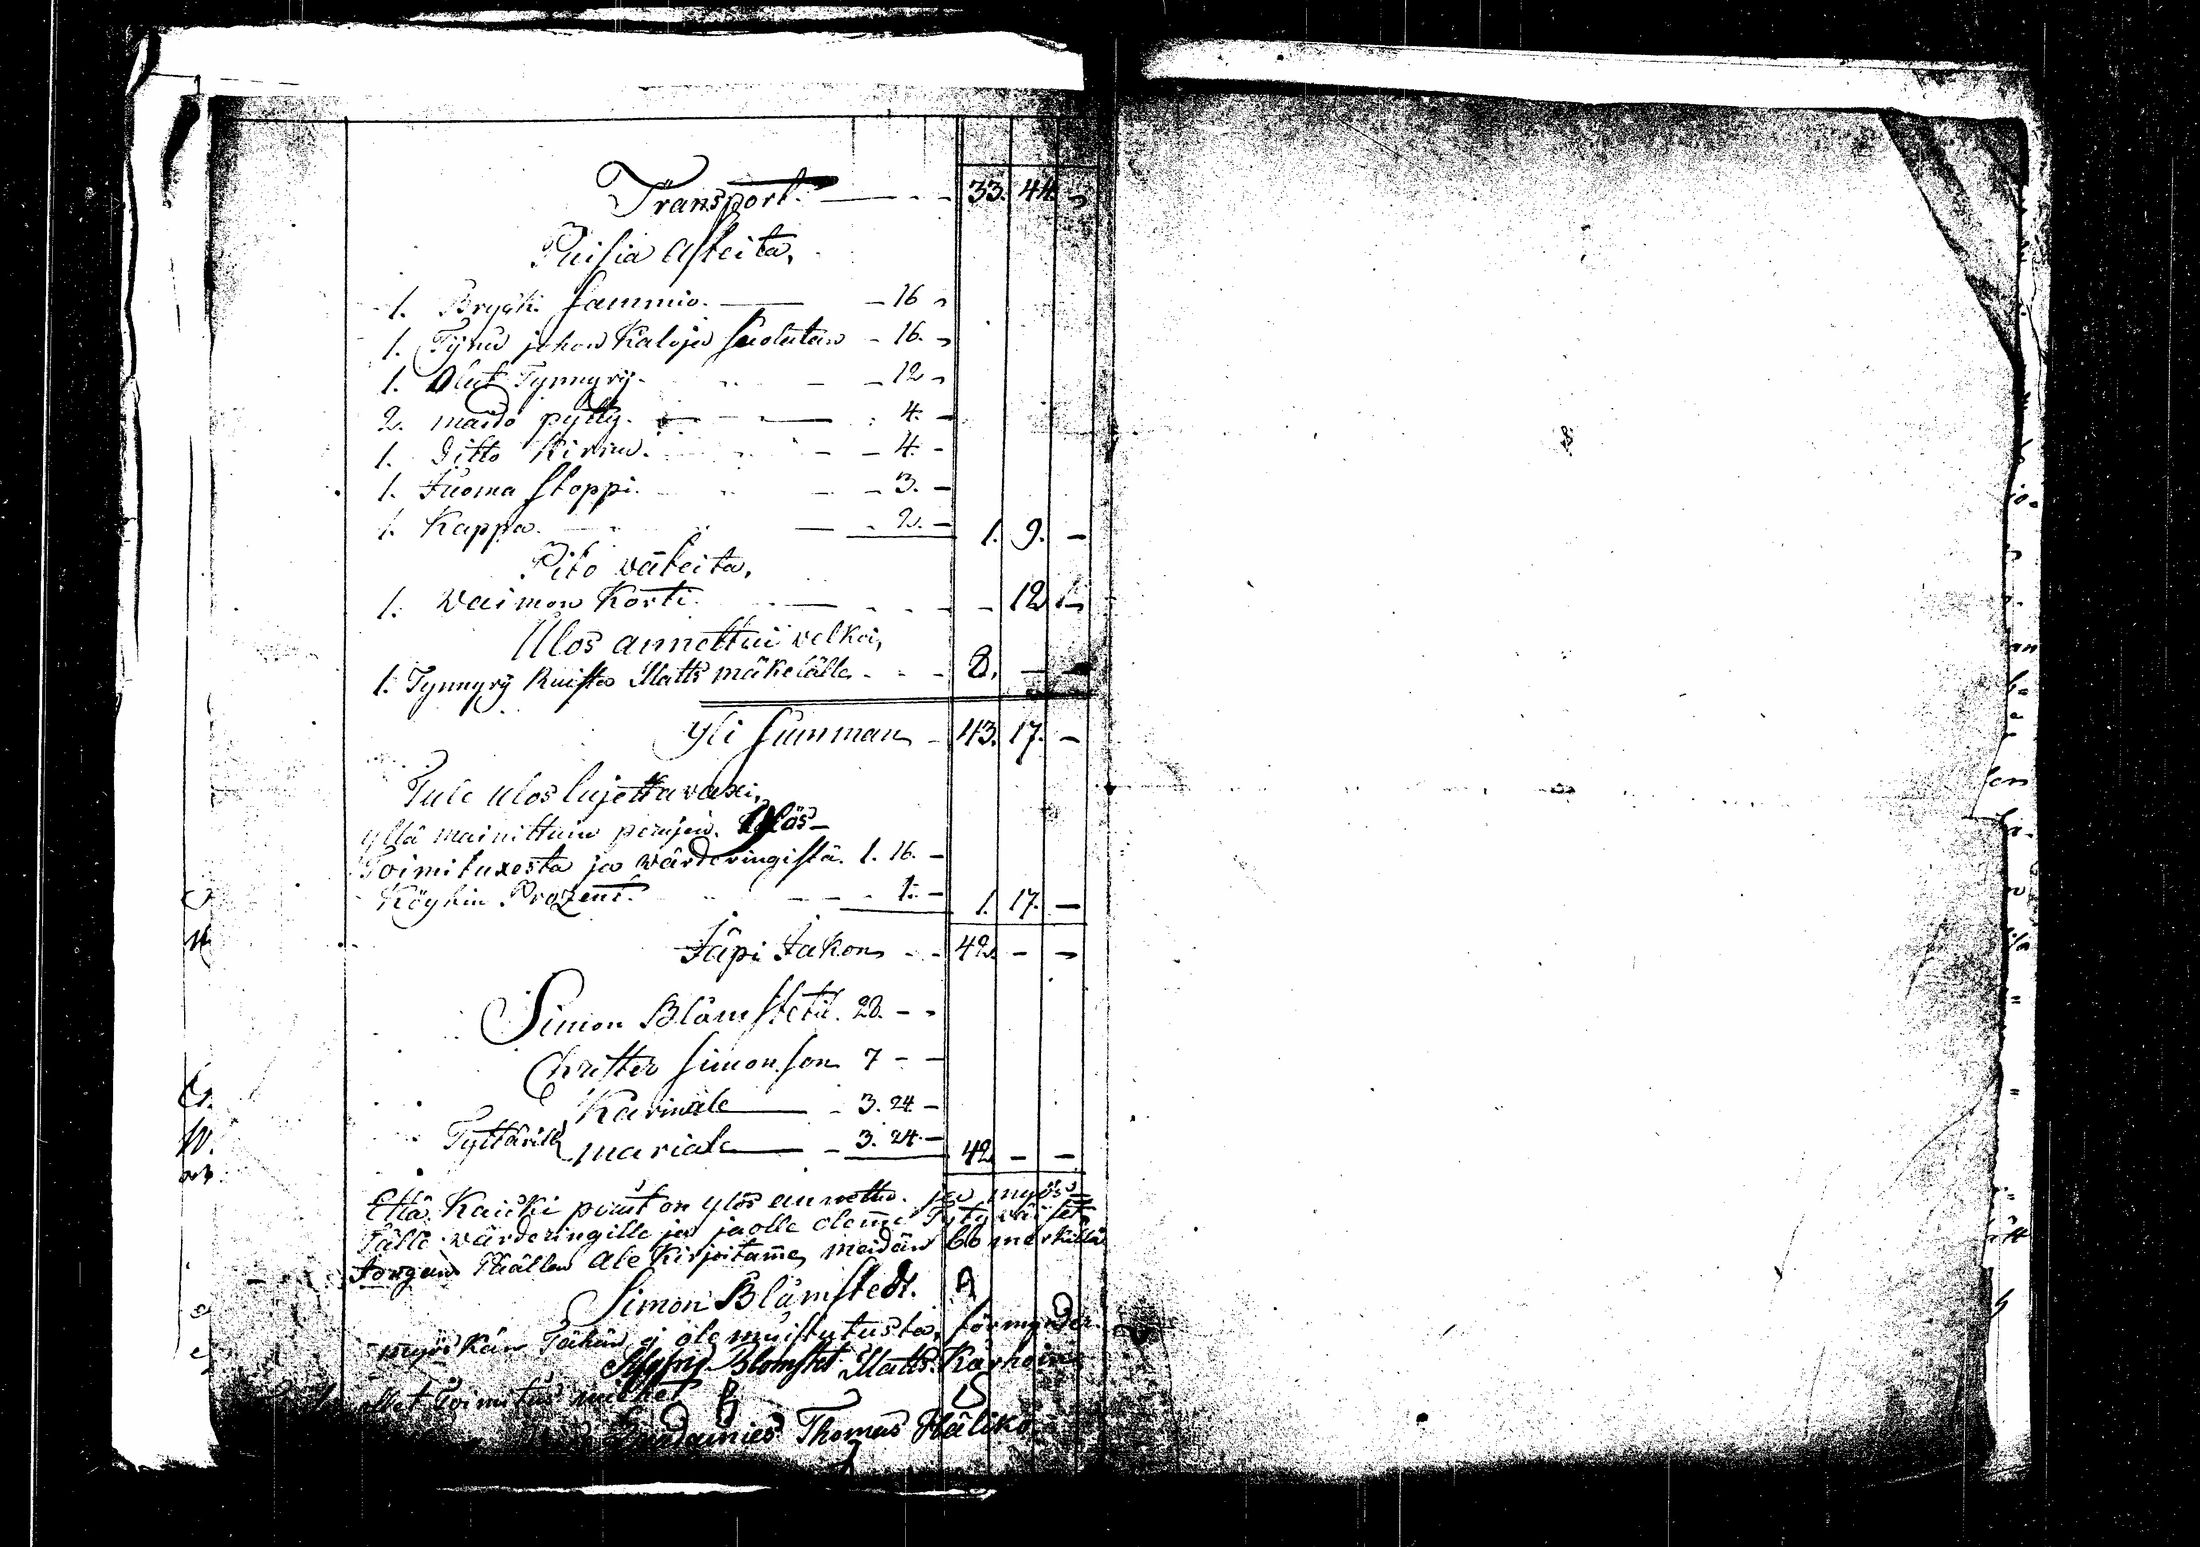 Transport. — 33. 44. -
Puisia Asteita,
1. Brycki Sammio. — 16 -
1. Tÿnü johon Kaloja Suolatan - 16. -
1. Olut Tynnyrÿ. — 12 -
2. maido pÿtty. — 4. -
1. Ditto Kirnu. — 4. -
1. Juoma stoppi. — 3. -
1. Kappa. — 2. - 1. 9. -
Pito väteita,
1. Waimon Korti. — 12
Ulos annettui velkoi,
1. Tynnyrÿ Ruista Matts mäkelälle - 8. - -
Yli Summan - 43. 17. -
Tule ulos lujettavaxi,
yllä mainittuin perujen. Ylös-
Toimituxesta ja wärderingistä. 1. 16. -
Köyhin Prozent. — 1. - 1. 17. -
Jäpi Jakon - 42. - -
Simon Blåmstetil. 28. - -
Christer Simonson 7 - -
Karinale — 3. 24. -
Tyttärille mariale — 3. 24. - 42 - -
Että Kaicki perut on ylös annettu. ja myös
Tälle wärderingille ja jaolle olem̃e Tytyväiset,
Jongan Päällen Ale Kirjoitam̃e, meidän bomerkillä
Simon Blåmstedt.
myös kän Tähän ej ole muistutusta, förmynder.
Blomstet Matts Karhoin
Met Toimitus miehet
Thomas Häliko